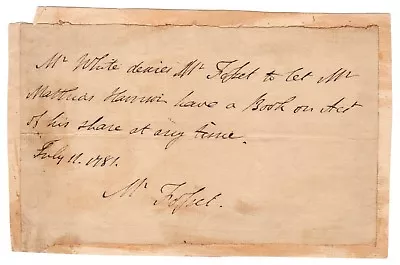 Mr White desires Mr Fosset to let Mr
Matthias Harrison have a Book on Acct
of his share at any time.
July 11. 1781.
Mr Fosset.